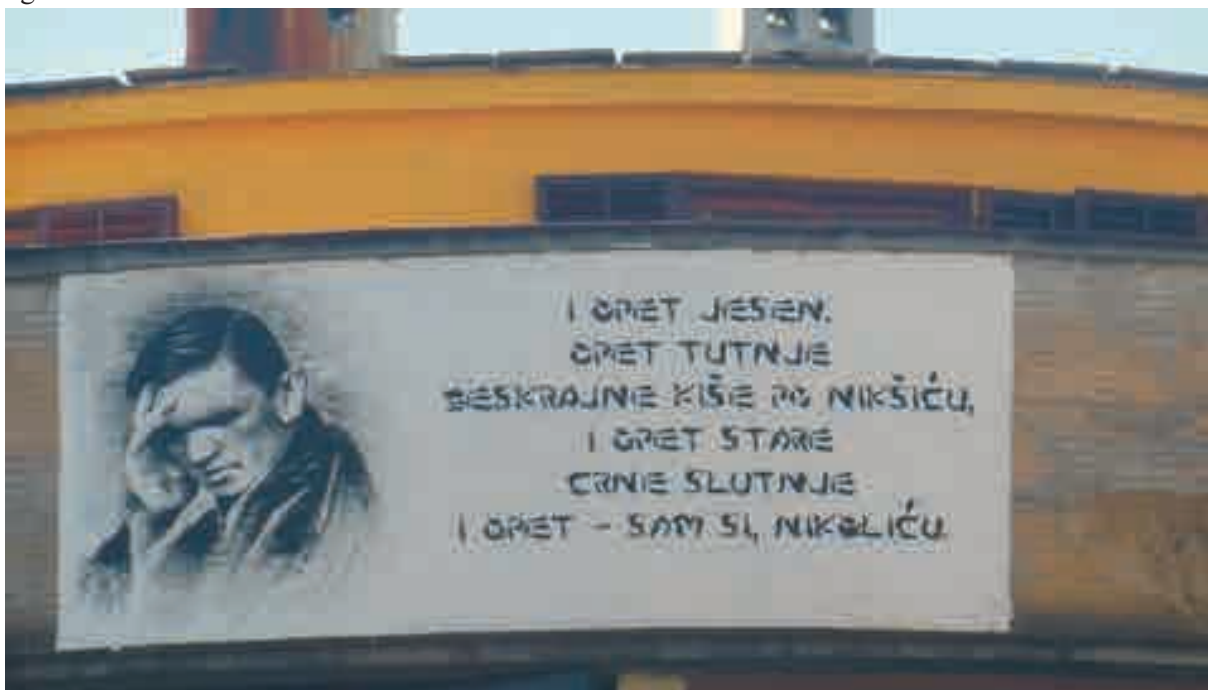 I OPET JESEN.
OPET TUTNJE
BESKRAJNE KIŠE PO NIKŠIĆU,
I OPET STARE
CRNE SLUTNJE
I OPET – SAM SI, NIKOLIĆU.